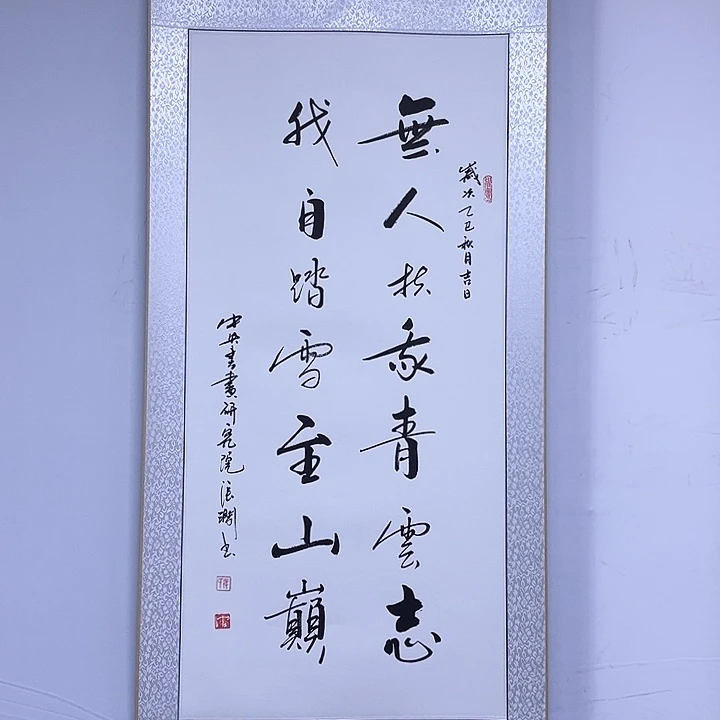 歲次乙巳秋月吉日
無人扶我青雲志
我自踏雪至山巔
中央書畫研究院張書